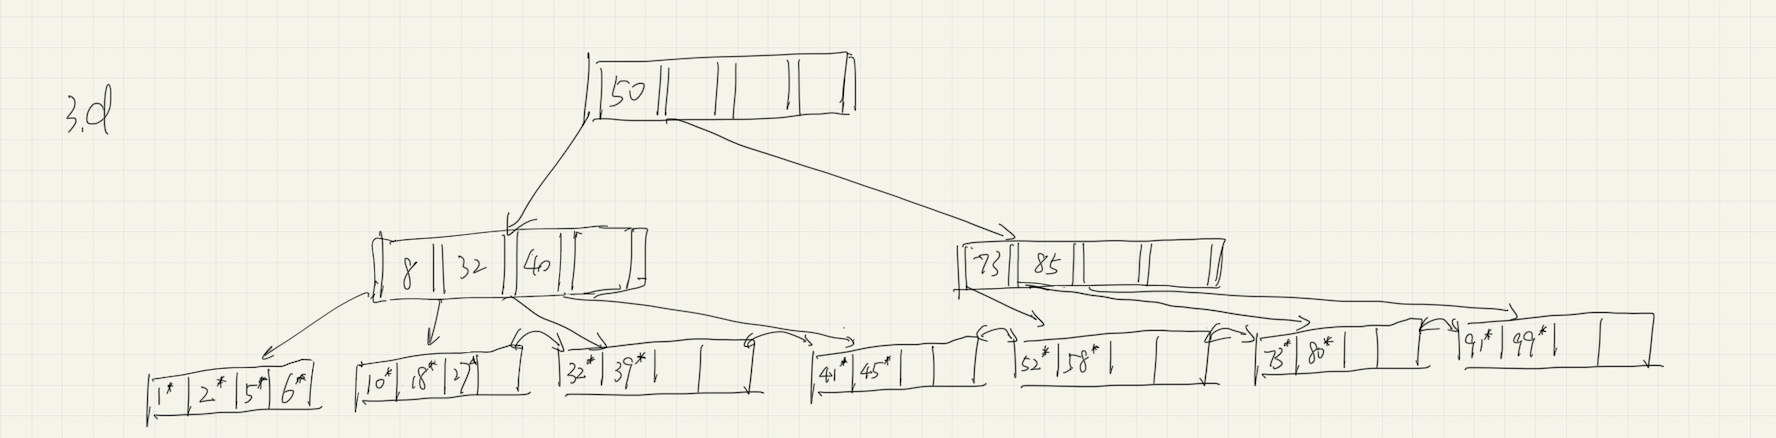 50
3.d
8 32 40
73 85
1* 2* 5* 6*
10* 18* 27*
32* 39*
41* 45*
52* 58*
73* 80*
91* 99*